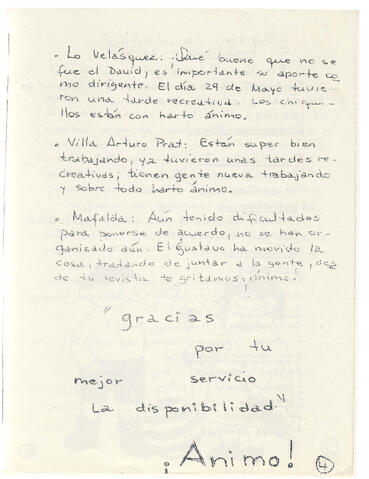 . Lo Velásquez: ¡Qué bueno que no se
fue el David, es importante su aporte co
mo dirigente. El día 29 de Mayo tuvie-
ron una tarde recreativa. Los chiqui-
llos están con harto ánimo.
. Villa Arturo Prat: Están super bien
trabajando, ya tuvieron unas tardes re-
creativas; tienen gente nueva trabajando
y sobre todo harto ánimo.
. Mafalda: Aún tenido dificultades
para ponerse de acuerdo, no se han or-
ganizado aún. El Gustavo ha movido la
cosa, tratando de juntar a la gente, des
de tu revista te gritamos ¡ánimo!
"gracias
por tu
mejor servicio
La disponibilidad"
¡Animo!
4